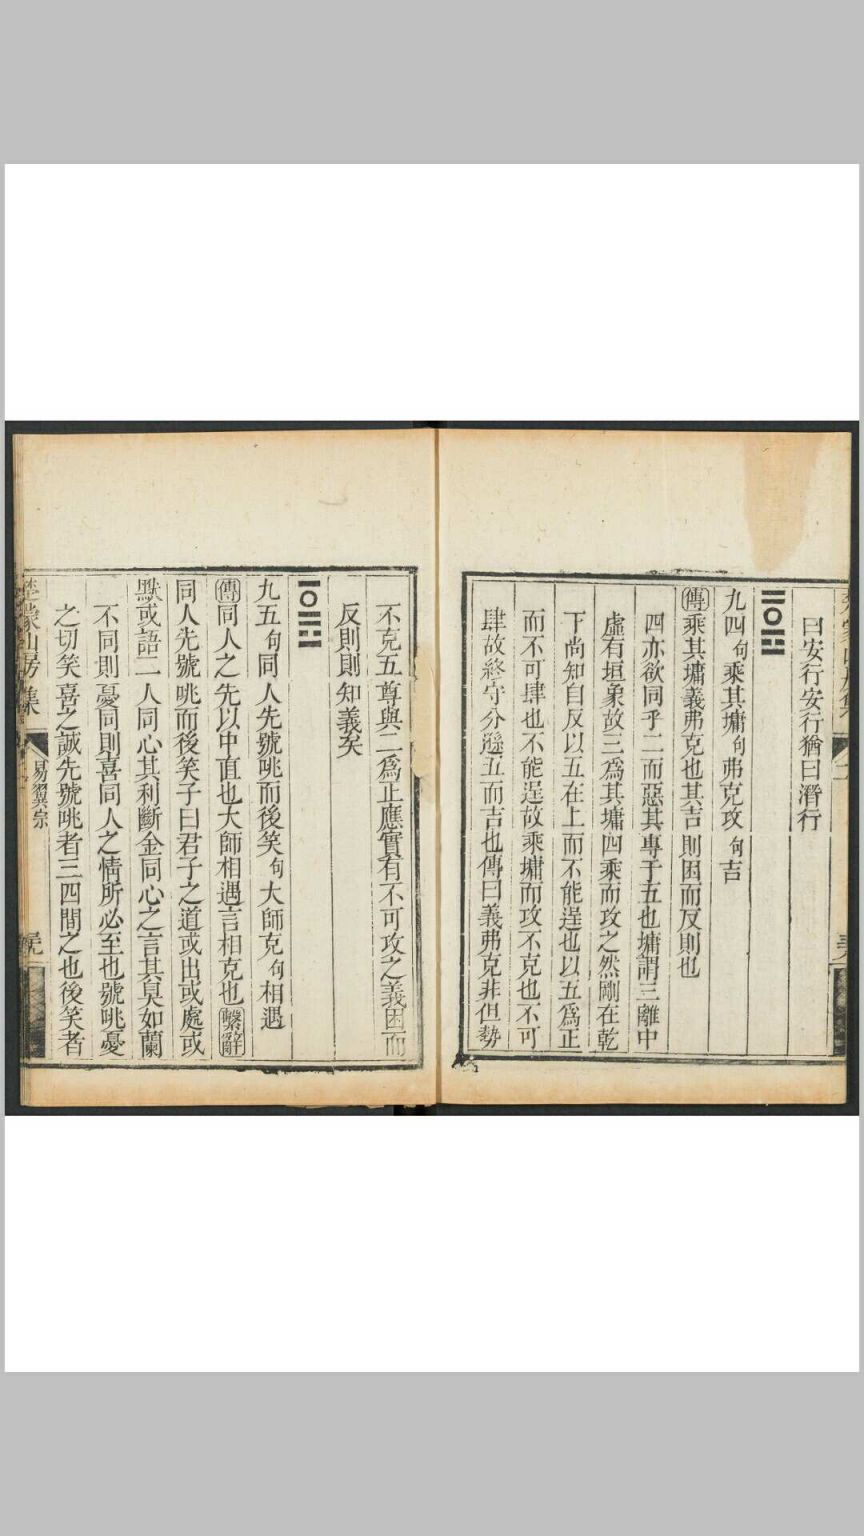 曰安行安行猶曰潛行
九四句乘其墉句弗克攻句吉
傳乘其墉義弗克也其吉則困而反則也
四亦欲同乎二而惡其專于五也墉謂三離中
虛有垣象故三為其墉四乘而攻之然剛在乾
下尚知自反以五在上而不能逞也以五為正
而不可肆也不能逞故乘墉而攻不克也不可
肆故終守分遜五而吉也傳曰義弗克非但勢
不克五尊與二為正應實有不可攻之義困而
反則則知義矣
九五句同人先號咷而後笑句大師克句相遇
傳同人之先以中直也大師相遇言相克也繫辭
同人先號咷而後笑子曰君子之道或出或處或
默或語二人同心其利斷金同心之言其臭如蘭
不同則憂同則喜同人之情所必至也號咷憂
之切笑喜之誠先號咷者三四間之也後笑者
楚蒙山房集
易翼宗